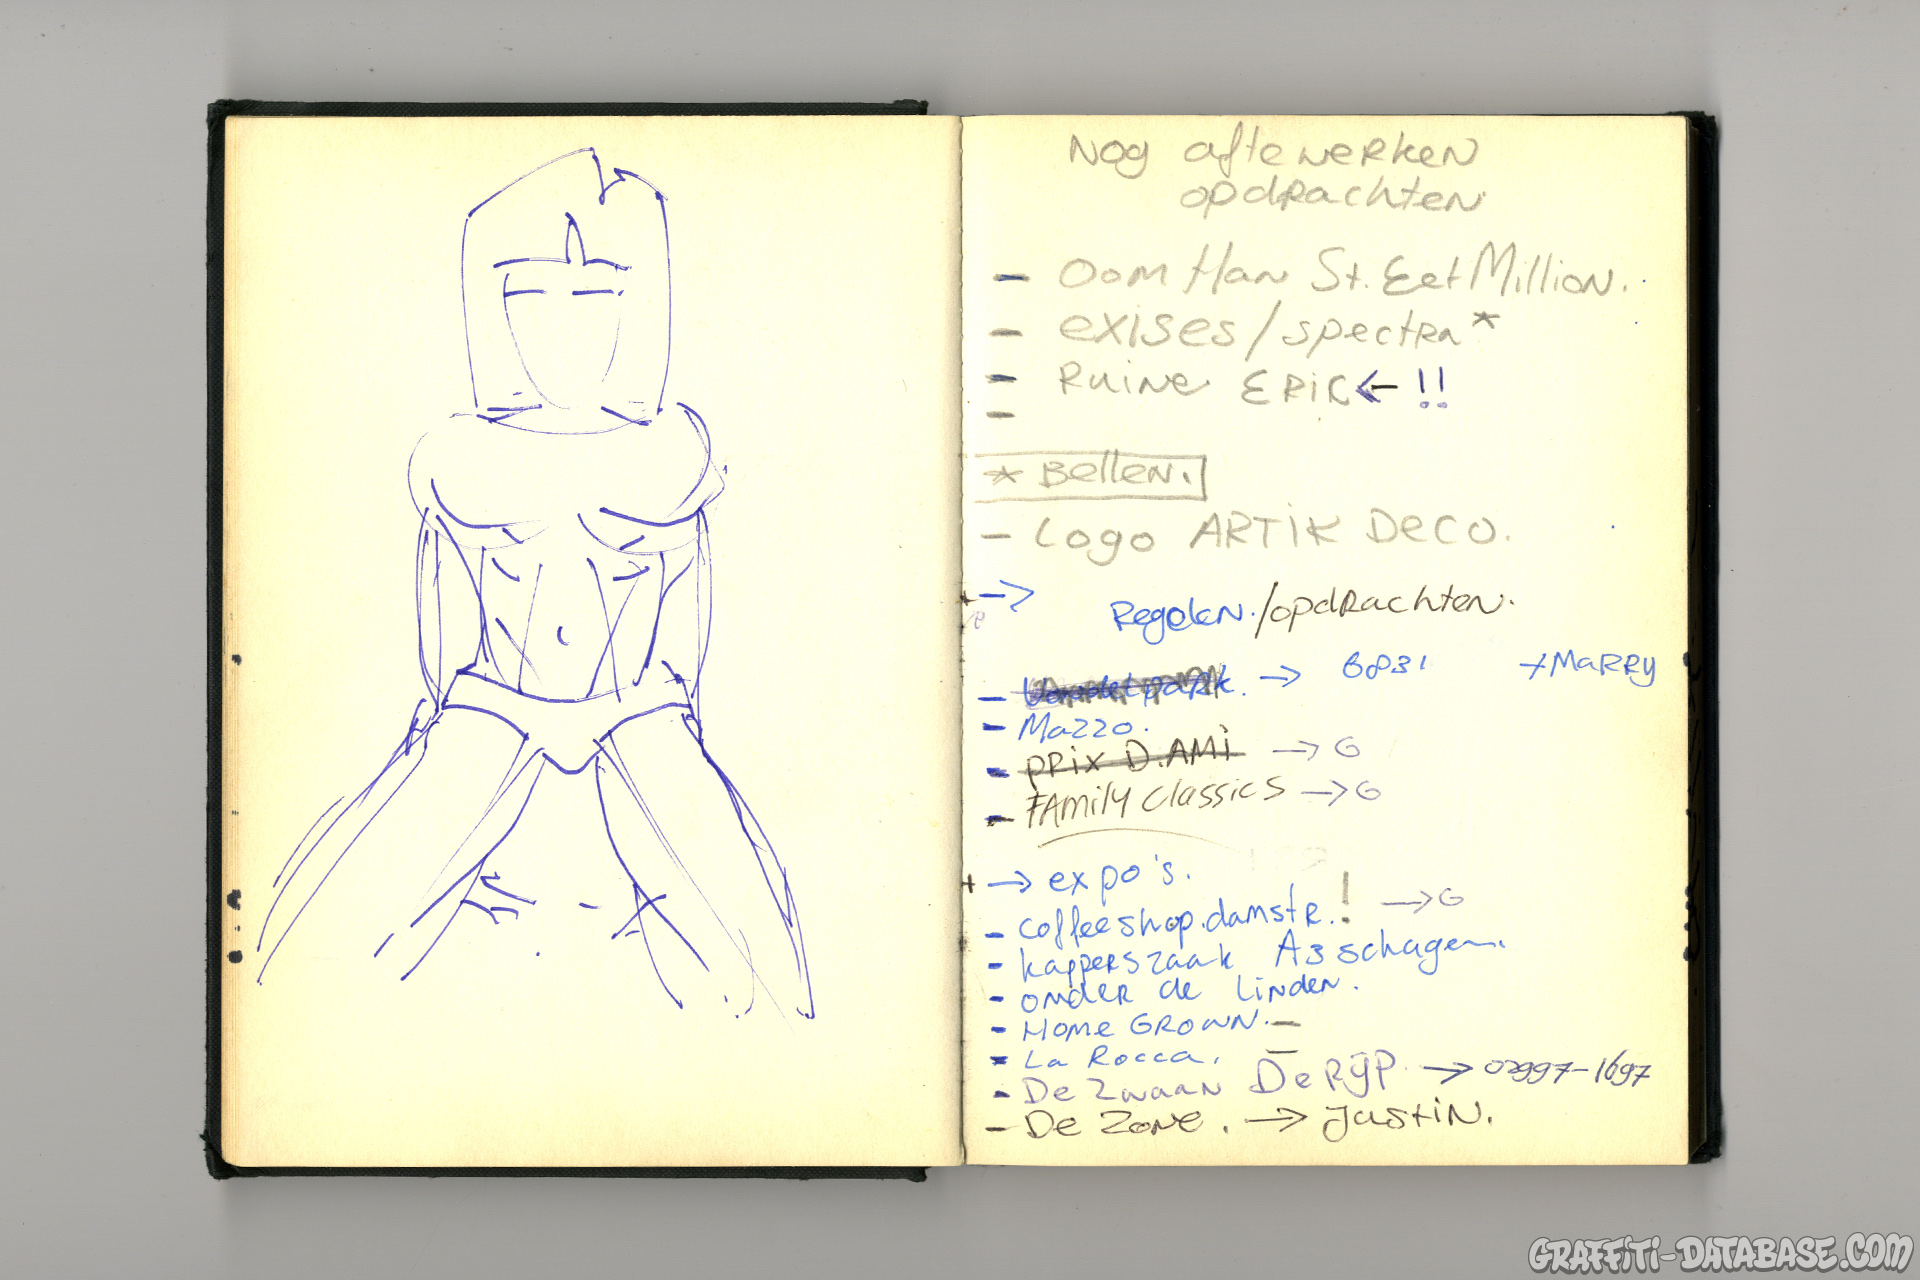 Nog afte werken
opdrachten
- Oom Han St. Eet Million.
- exises/spectra*
- Ruine ERIK ← !!
-
* Bellen.
- Logo ARTIK DECO.
+ → Regelen./opdrachten.
- Vondelpark. → + MARRY
- Mazzo.
- PRIX D.AMI → G
- FAMILY Classics → G
+ → expo's.
- coffeeshop.damstr.! → G
- kapperszaak A3 schagen.
- onder de Linden.
- Home GROWN. -
- La Rocca.
- De Zwaan De RIJP. → 02997-1697
- De Zone. → Justin.
GRAFFITI-DATABASE.COM